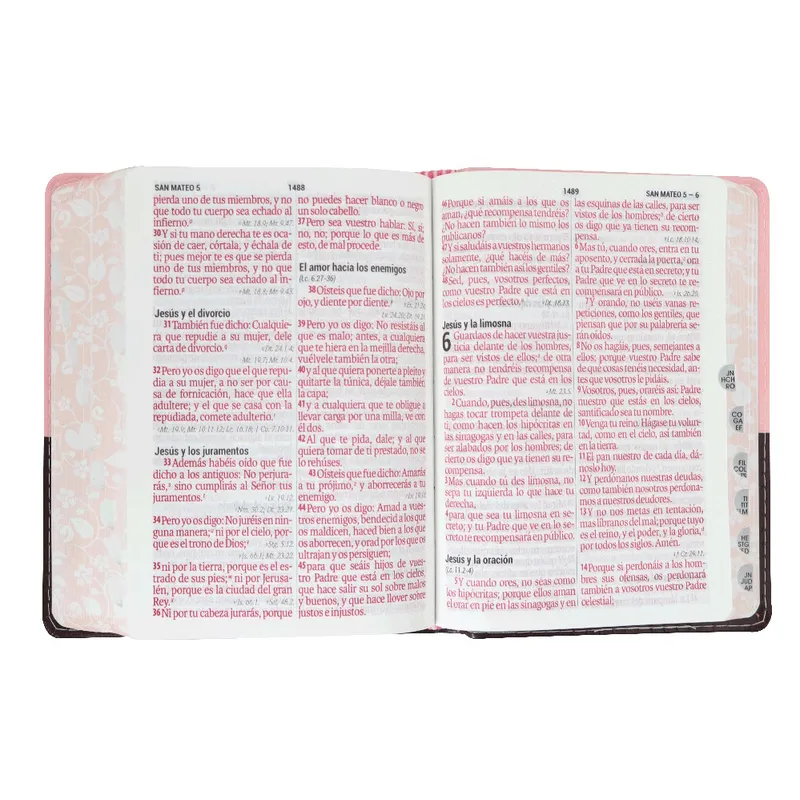 SAN MATEO 5
1488
pierda uno de tus miembros, y no
que todo tu cuerpo sea echado al
infierno.
30 Y si tu mano derecha te es oca-
sión de caer, córtala, y échala de
ti; pues mejor te es que se pierda
uno de tus miembros, y no que
todo tu cuerpo sea echado al in-
fierno.
Jesús y el divorcio
31 También fue dicho: Cualquie-
ra que repudie a su mujer, dele
carta de divorcio.
32 Pero yo os digo que el que repu-
dia a su mujer, a no ser por cau-
sa de fornicación, hace que ella
adultere; y el que se casa con la
repudiada, comete adulterio.
Jesús y los juramentos
33 Además habéis oído que fue
dicho a los antiguos: No perjura-
rás, sino cumplirás al Señor tus
juramentos.
34 Pero yo os digo: No juréis en nin-
guna manera; ni por el cielo, por-
que es el trono de Dios;
35 ni por la tierra, porque es el es-
trado de sus pies; ni por Jerusa-
lén, porque es la ciudad del gran
Rey.
36 Ni por tu cabeza jurarás, porque
no puedes hacer blanco o negro
un solo cabello.
37 Pero sea vuestro hablar: Sí, sí;
no, no; porque lo que es más de
esto, de mal procede.
El amor hacia los enemigos
(Lc. 6.27-36)
38 Oísteis que fue dicho: Ojo por
ojo, y diente por diente.
39 Pero yo os digo: No resistáis al
que es malo; antes, a cualquiera
que te hiera en la mejilla derecha,
vuélvele también la otra;
40 y al que quiera ponerte a pleito y
quitarte la túnica, déjale también
la capa;
41 y a cualquiera que te obligue a
llevar carga por una milla, ve con
él dos.
42 Al que te pida, dale; y al que
quiera tomar de ti prestado, no se
lo rehúses.
43 Oísteis que fue dicho: Amarás
a tu prójimo, y aborrecerás a tu
enemigo.
44 Pero yo os digo: Amad a vues-
tros enemigos, bendecid a los que
os maldicen, haced bien a los que
os aborrecen, y orad por los que os
ultrajan y os persiguen;
45 para que seáis hijos de vues-
tro Padre que está en los cielos,
que hace salir su sol sobre malos
y buenos, y que hace llover sobre
justos e injustos.
1489
SAN MATEO 5 – 6
46 Porque si amáis a los que os
aman, ¿qué recompensa tendréis?
¿No hacen también lo mismo los
publicanos?
47 Y si saludáis a vuestros hermanos
solamente, ¿qué hacéis de más?
¿No hacen también así los gentiles?
48 Sed, pues, vosotros perfectos,
como vuestro Padre que está en
los cielos es perfecto.
Jesús y la limosna
6 Guardaos de hacer vuestra jus-
ticia delante de los hombres,
para ser vistos de ellos; de otra
manera no tendréis recompensa
de vuestro Padre que está en los
cielos.
2 Cuando, pues, des limosna, no
hagas tocar trompeta delante de
ti, como hacen los hipócritas en
las sinagogas y en las calles, para
ser alabados por los hombres; de
cierto os digo que ya tienen su re-
compensa.
3 Mas cuando tú des limosna, no
sepa tu izquierda lo que hace tu
derecha,
4 para que sea tu limosna en se-
creto; y tu Padre que ve en lo se-
creto te recompensará en público.
Jesús y la oración
(Lc. 11.2-4)
5 Y cuando ores, no seas como
los hipócritas; porque ellos aman
el orar en pie en las sinagogas y en
las esquinas de las calles, para ser
vistos de los hombres; de cierto
os digo que ya tienen su recom-
pensa.
6 Mas tú, cuando ores, entra en tu
aposento, y cerrada la puerta, ora
a tu Padre que está en secreto; y tu
Padre que ve en lo secreto te re-
compensará en público.
7 Y orando, no uséis vanas re-
peticiones, como los gentiles, que
piensan que por su palabrería se-
rán oídos.
8 No os hagáis, pues, semejantes a
ellos; porque vuestro Padre sabe
de qué cosas tenéis necesidad, an-
tes que vosotros le pidáis.
9 Vosotros, pues, oraréis así: Padre
nuestro que estás en los cielos,
santificado sea tu nombre.
10 Venga tu reino. Hágase tu volun-
tad, como en el cielo, así también
en la tierra.
11 El pan nuestro de cada día, dá-
noslo hoy.
12 Y perdónanos nuestras deudas,
como también nosotros perdona-
mos a nuestros deudores.
13 Y no nos metas en tentación,
mas líbranos del mal; porque tuyo
es el reino, y el poder, y la gloria,
por todos los siglos. Amén.
14 Porque si perdonáis a los hom-
bres sus ofensas, os perdonará
también a vosotros vuestro Padre
celestial;
JN
HCH
RO
CO
GA
EF
FIL
COL
TI
TIT
FLM
HE
STG
JN
JUD
AP